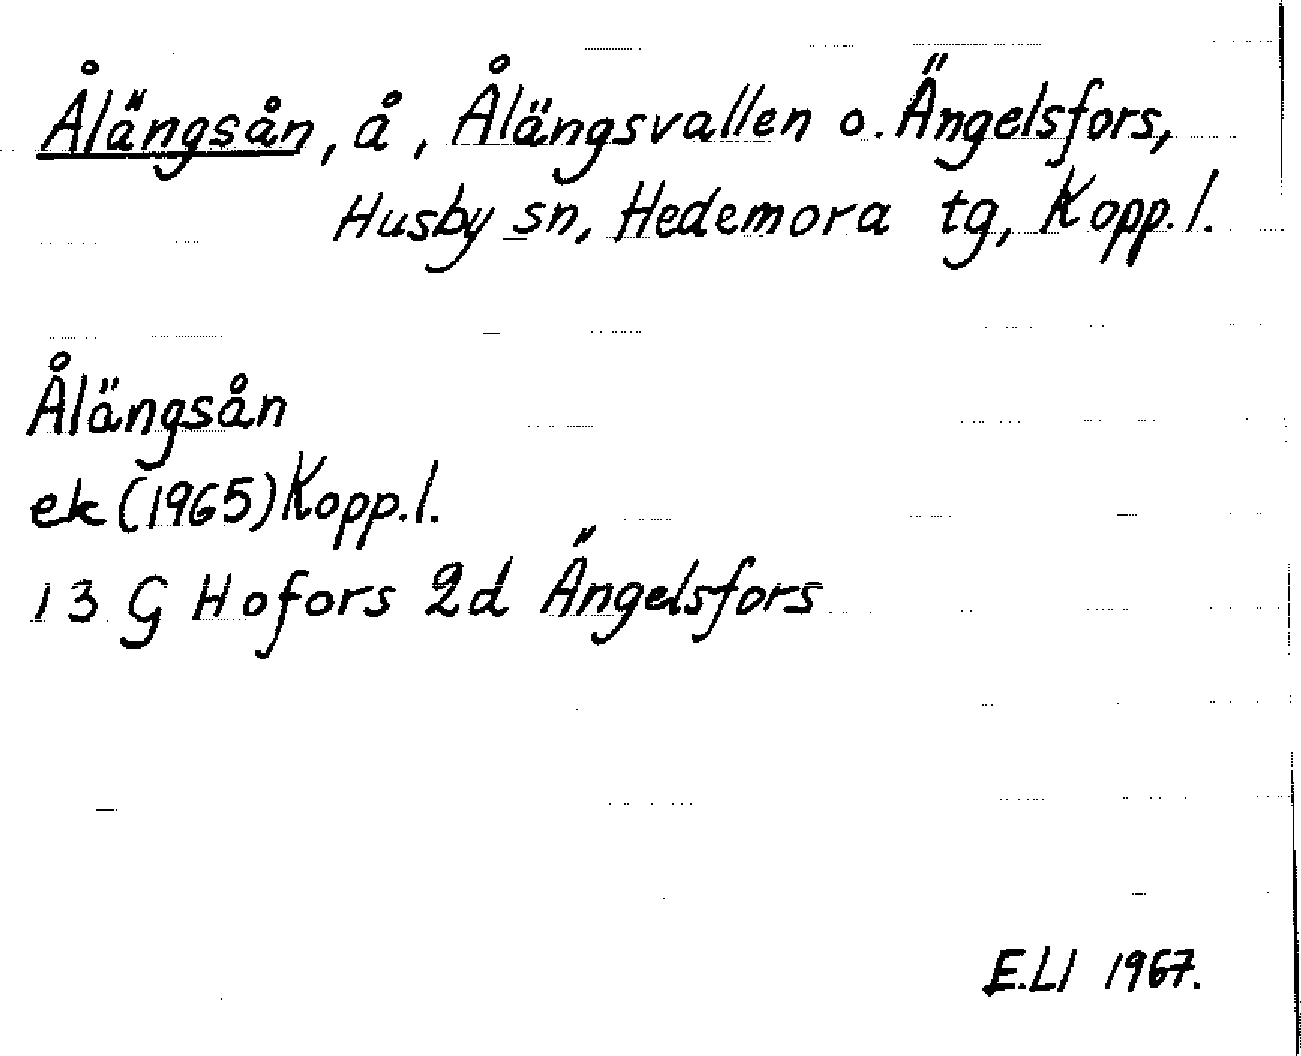 Ålängsån, å, Ålängsvallen o. Ängelsfors,
Husby sn, Hedemora tg, Kopp. l.
Ålängsån
ek (1965) Kopp. l.
13 G Hofors 2d Ängelsfors
E.Ll 1967.